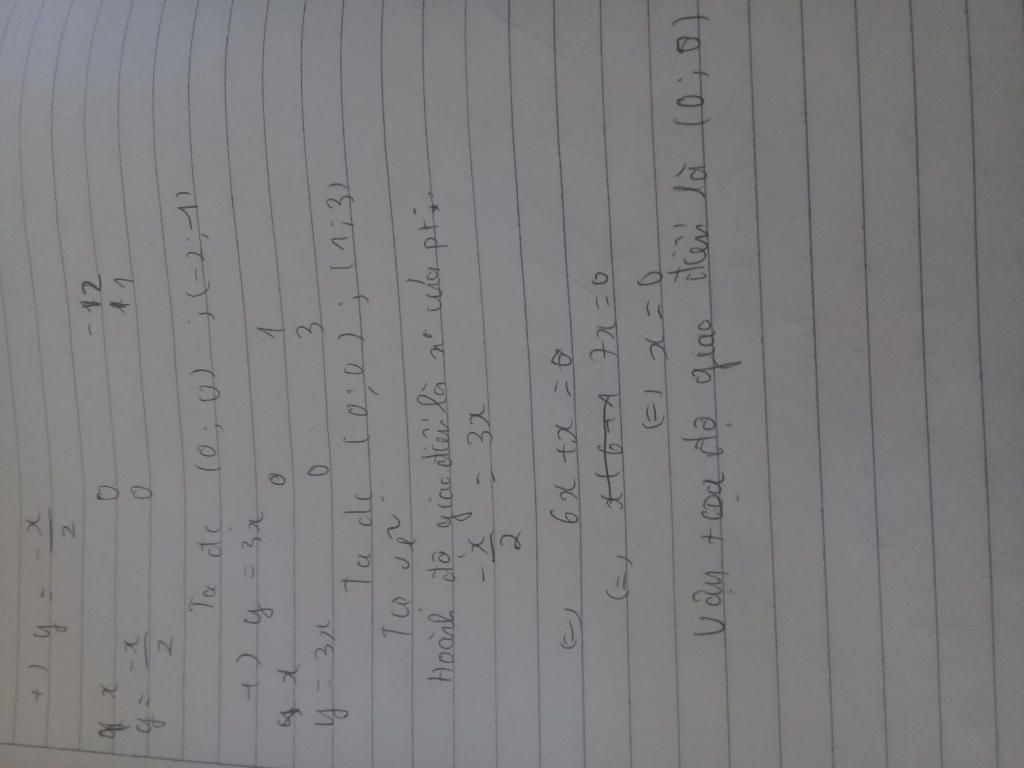 +) y = -x/2
x 0 -2
y = -x/2 0 1
Ta đc (0; 0); (-2; 1)
+) y = 3x
x 0 1
y = 3x 0 3
Ta đc (0; 0); (1; 3)
Ta vẽ
Hoành độ giao điểm là nº của pt:
-x/2 = 3x
(=) 6x + x = 0
(=) 7x = 0
(=) x = 0
Vậy toạ độ giao điểm là (0; 0)